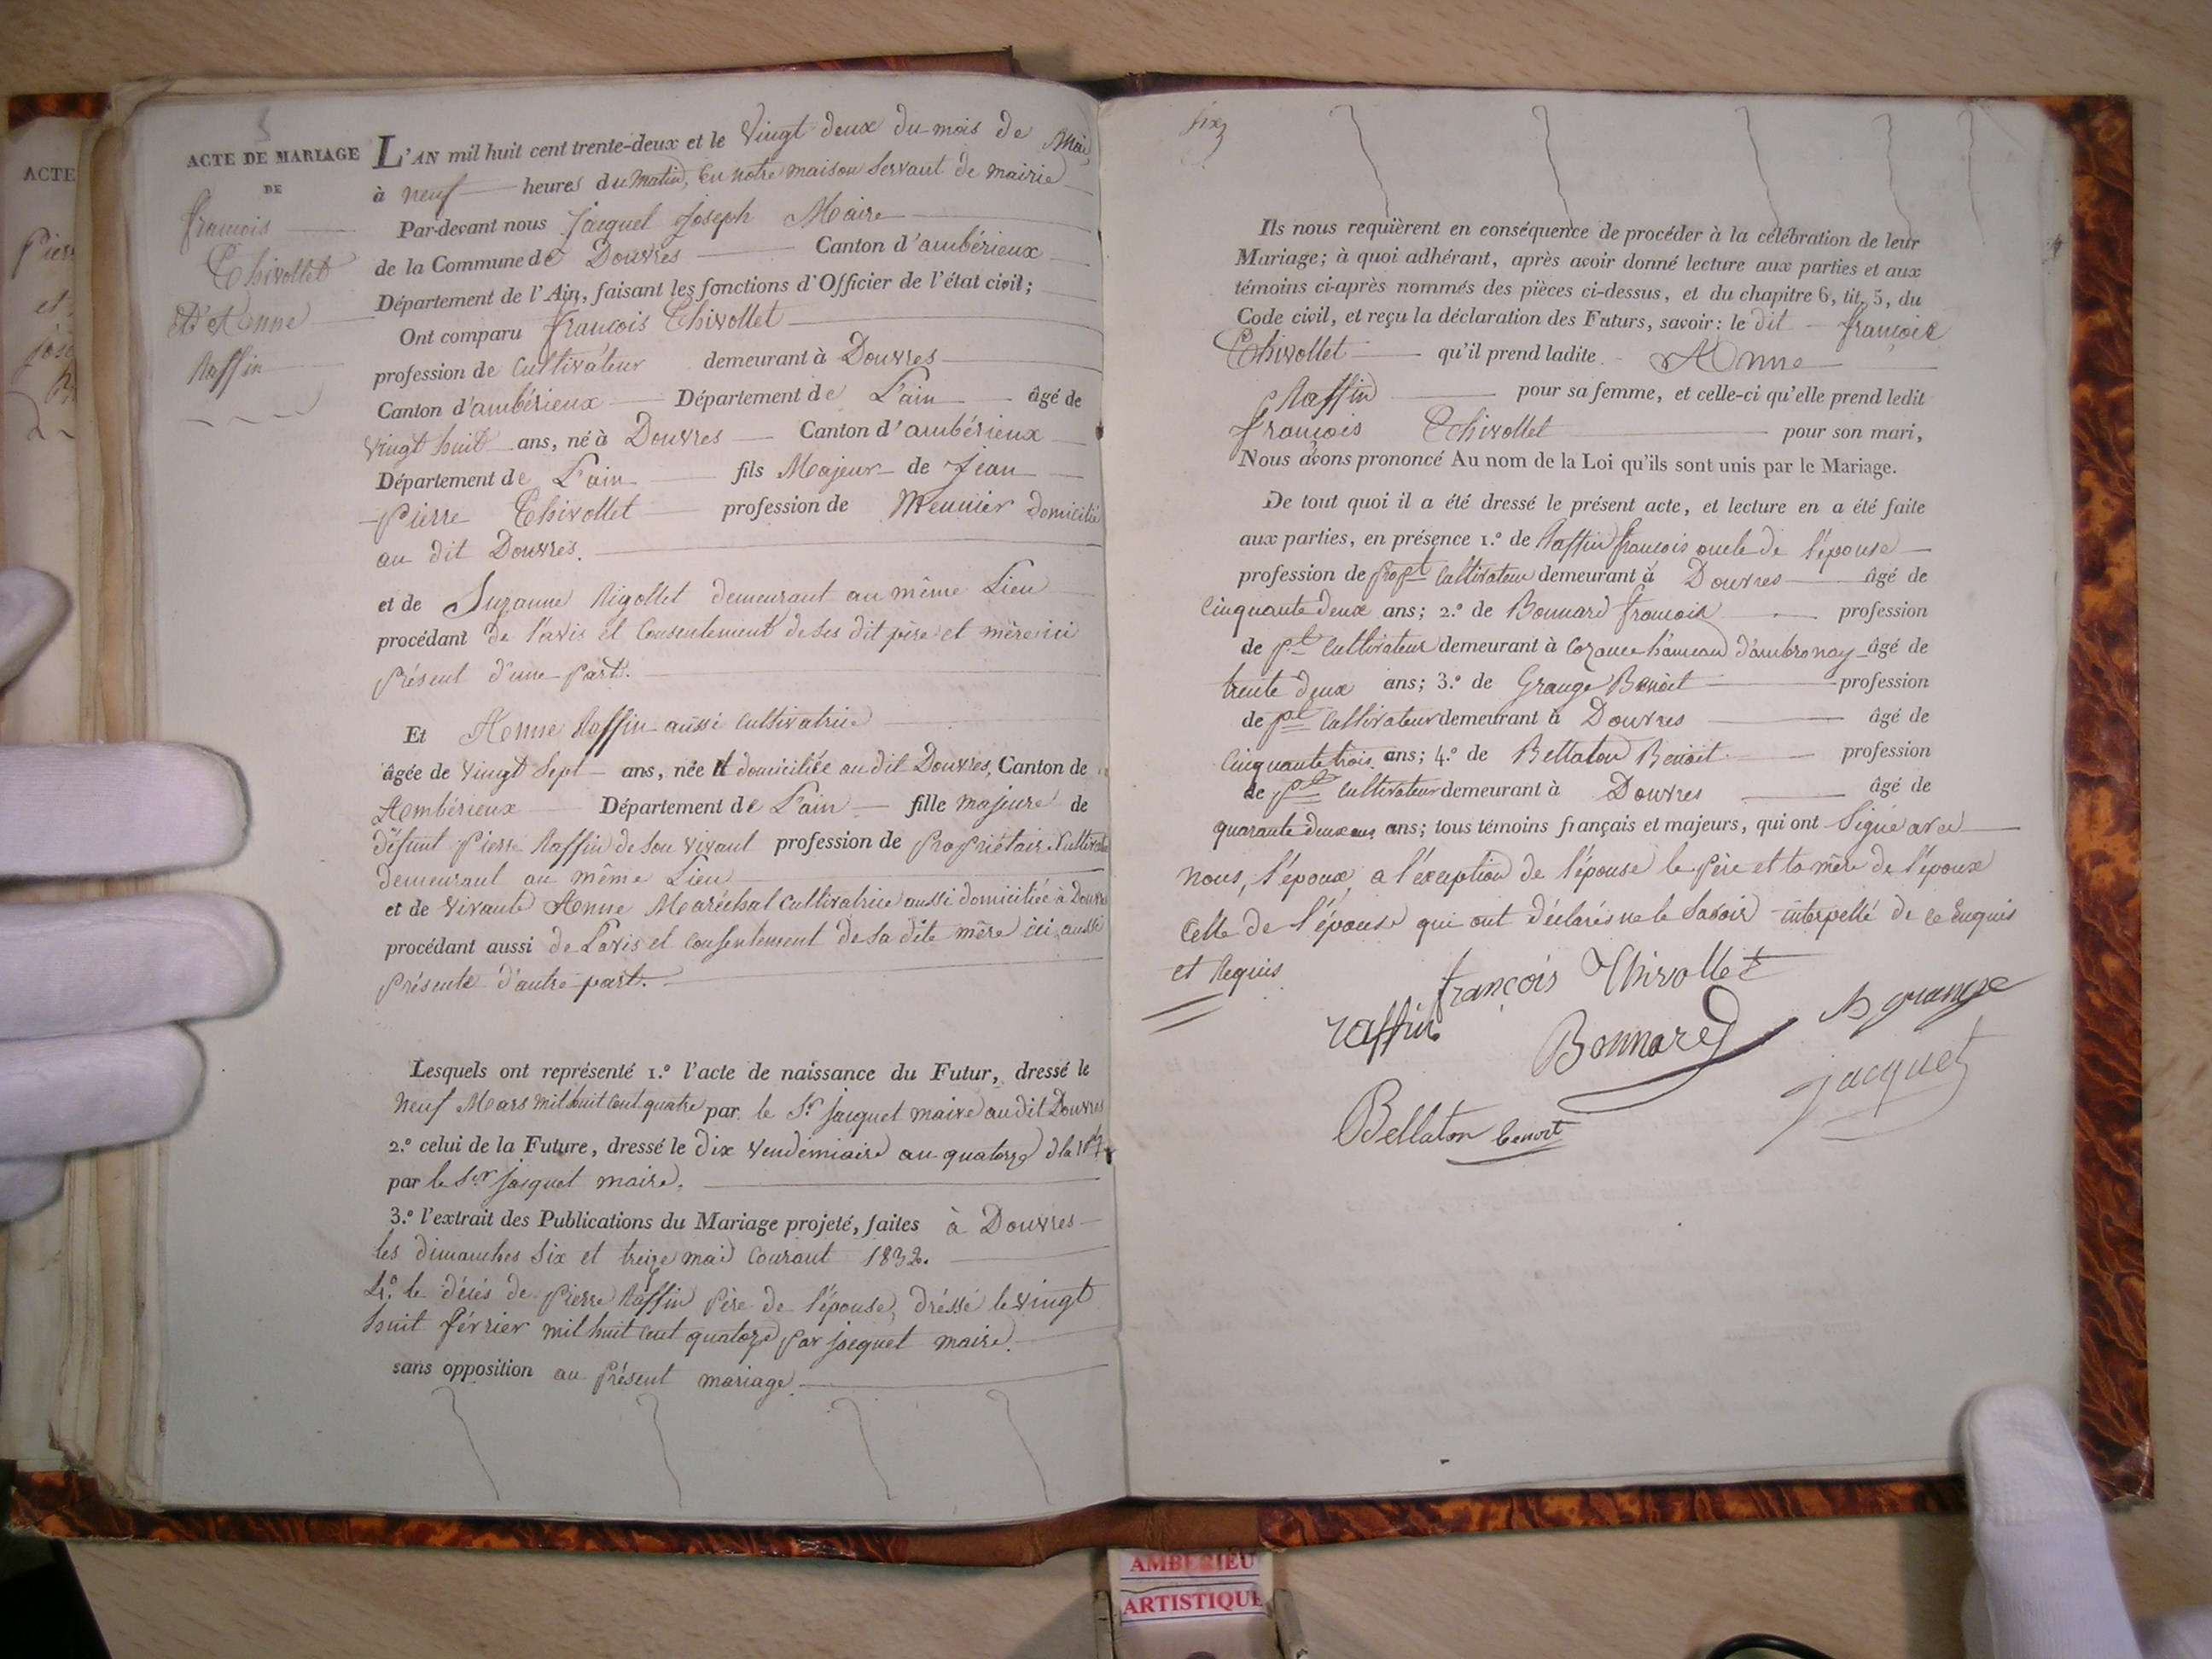 5
ACTE
Pier
et
ACTE DE MARIAGE
DE
françois
Thivollet
Et Anne
Raffin
L'AN mil huit cent trente-deux et le Vingt deux du mois de Mai,
à neuf heures du Matin, En notre maison Servant de mairie
Par-devant nous Jacquet Joseph Maire
de la Commune de Douvres Canton d'ambérieux
Département de l'Ain, faisant les fonctions d'Officier de l'état civil;
Ont comparu françois Thivollet
profession de Cultivateur demeurant à Douvres
Canton d'ambérieux Département de L'ain âgé de
vingt huit ans, né à Douvres Canton d'ambérieux
Département de L'ain fils Majeur de Jean
Pierre Thivollet profession de Meunier Domicilié
au dit Douvres.
et de Suzanne Rigollet demeurant au même Lieu
procédant de l'avis et Consentement de Ses dit père et mère ici
Présent d'une Part.
Et Anne Raffin aussi Cultivatrice
âgée de vingt Sept ans, née et domiciliée au dit Douvres, Canton de
Ambérieux Département de L'ain fille majeure de
défunt Pierre Raffin de Son vivant profession de Propriétaire Cultivate
demeurant au même Lieu
et de vivante Anne Maréchal Cultivatrice aussi domiciliée à Douvres
procédant aussi de L'avis et Consentement de Sa dite mère ici aussi
Présente d'autre part.
Lesquels ont représenté 1.º l'acte de naissance du Futur, dressé le
Neuf Mars mil huit Cent quatre par le Sr. Jacquet maire au dit Douvres
2.º celui de la Future, dressé le dix Vendémiaire an quatorze d la
par le Sr Jacquet maire.
3.º l'extrait des Publications du Mariage projeté, faites à Douvres
les dimanches Six et treize mai Courant 1832.
4.º le décès de Pierre Raffin Père de l'épouse, dréssé le vingt
huit février mil huit Cent quatorze par Jacquet maire.
sans opposition au Présent mariage.
Six
Ils nous requièrent en conséquence de procéder à la célébration de leur
Mariage; à quoi adhérant, après avoir donné lecture aux parties et aux
témoins ci-après nommés des pièces ci-dessus, et du chapitre 6, tit. 5, du
Code civil, et reçu la déclaration des Futurs, savoir: le dit françois
Thivollet qu'il prend ladite Anne
Raffin pour sa femme, et celle-ci qu'elle prend ledit
françois Thivollet pour son mari,
Nous avons prononcé Au nom de la Loi qu'ils sont unis par le Mariage.
De tout quoi il a été dressé le présent acte, et lecture en a été faite
aux parties, en présence 1.º de Raffin françois oncle de l'épouse
profession de propt Cultivateur demeurant à Douvres âgé de
Cinquante deux ans; 2.º de Bonnard françois profession
de pt Cultivateur demeurant à Cozance hameau d'ambronay âgé de
trente deux ans; 3.º de Grange Benoît profession
de pt Cultivateur demeurant à Douvres âgé de
Cinquante trois ans; 4.º de Bellaton Benoit profession
de pt Cultivateur demeurant à Douvres âgé de
quarante deux ans ans; tous témoins français et majeurs, qui ont Signé avec
nous, l'époux, a l'éxception de l'épouse le Père et la mère de l'époux
Celle de l'épouse qui ont déclarés ne le Savoir interpellé de ce Enquis
et Requis
françois Thivollet
raffin Bonnared B grange
Bellaton benoit jacquet
AMBERIEU
ARTISTIQUE